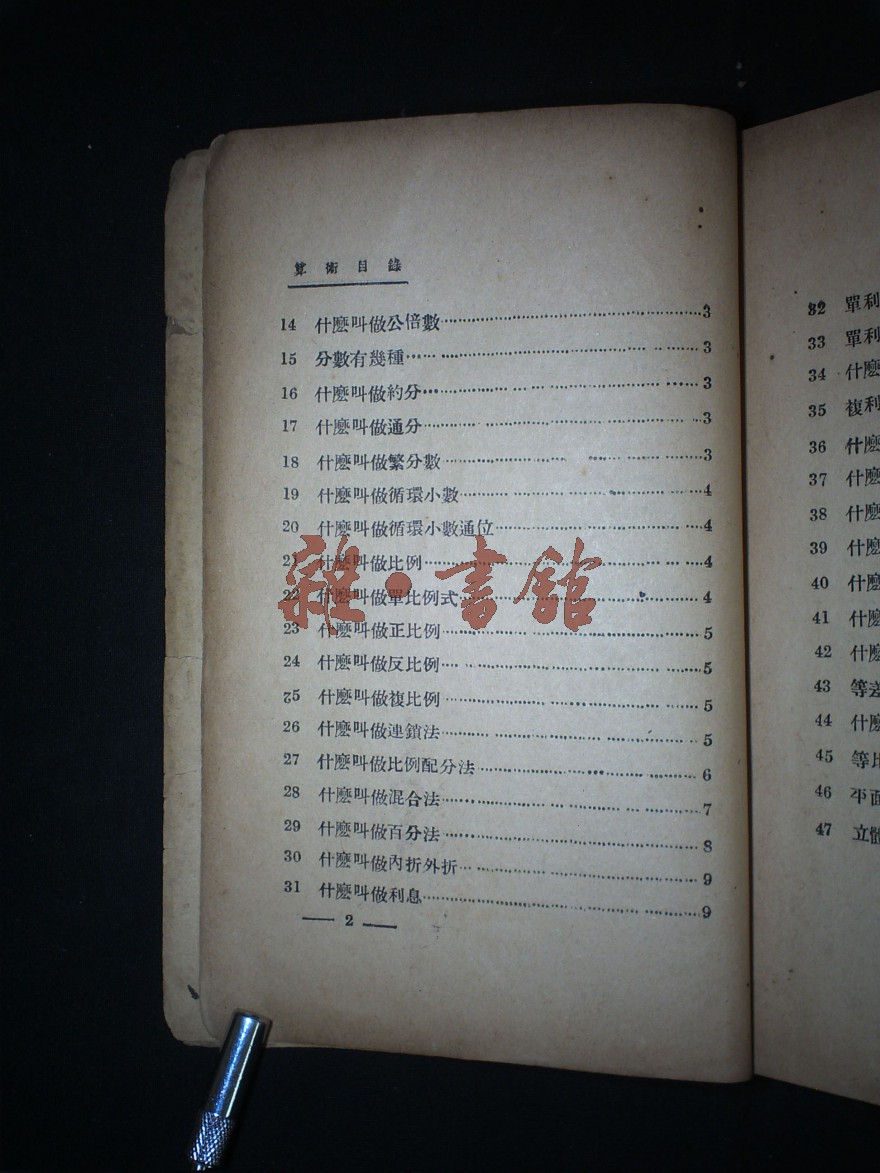 算術目錄
14 什麼叫做公倍數……3
15 分數有幾種……3
16 什麼叫做約分……3
17 什麼叫做通分……3
18 什麼叫做繁分數……3
19 什麼叫做循環小數……4
20 什麼叫做循環小數通位……4
21 什麼叫做比例……4
22 什麼叫做單比例式……4
23 什麼叫做正比例……5
24 什麼叫做反比例……5
25 什麼叫做複比例……5
26 什麼叫做連鎖法……5
27 什麼叫做比例配分法……6
28 什麼叫做混合法……7
29 什麼叫做百分法……8
30 什麼叫做內折外折……9
31 什麼叫做利息……9
— 2 —
雜·書館
32 單利
33 單利
34 什麼
35 複利
36 什麼
37 什麼
38 什麼
39 什麼
40 什麼
41 什麼
42 什麼
43 等差
44 什麼
45 等比
46 平面
47 立體